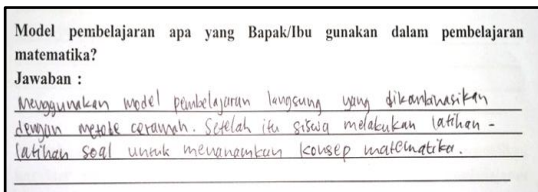 Model pembelajaran apa yang Bapak/Ibu gunakan dalam pembelajaran
matematika?
Jawaban :
Menggunakan model pembelajaran langsung yang dikombinasikan
dengan metode ceramah. Setelah itu siswa melakukan latihan -
latihan soal untuk menanamkan konsep matematika.